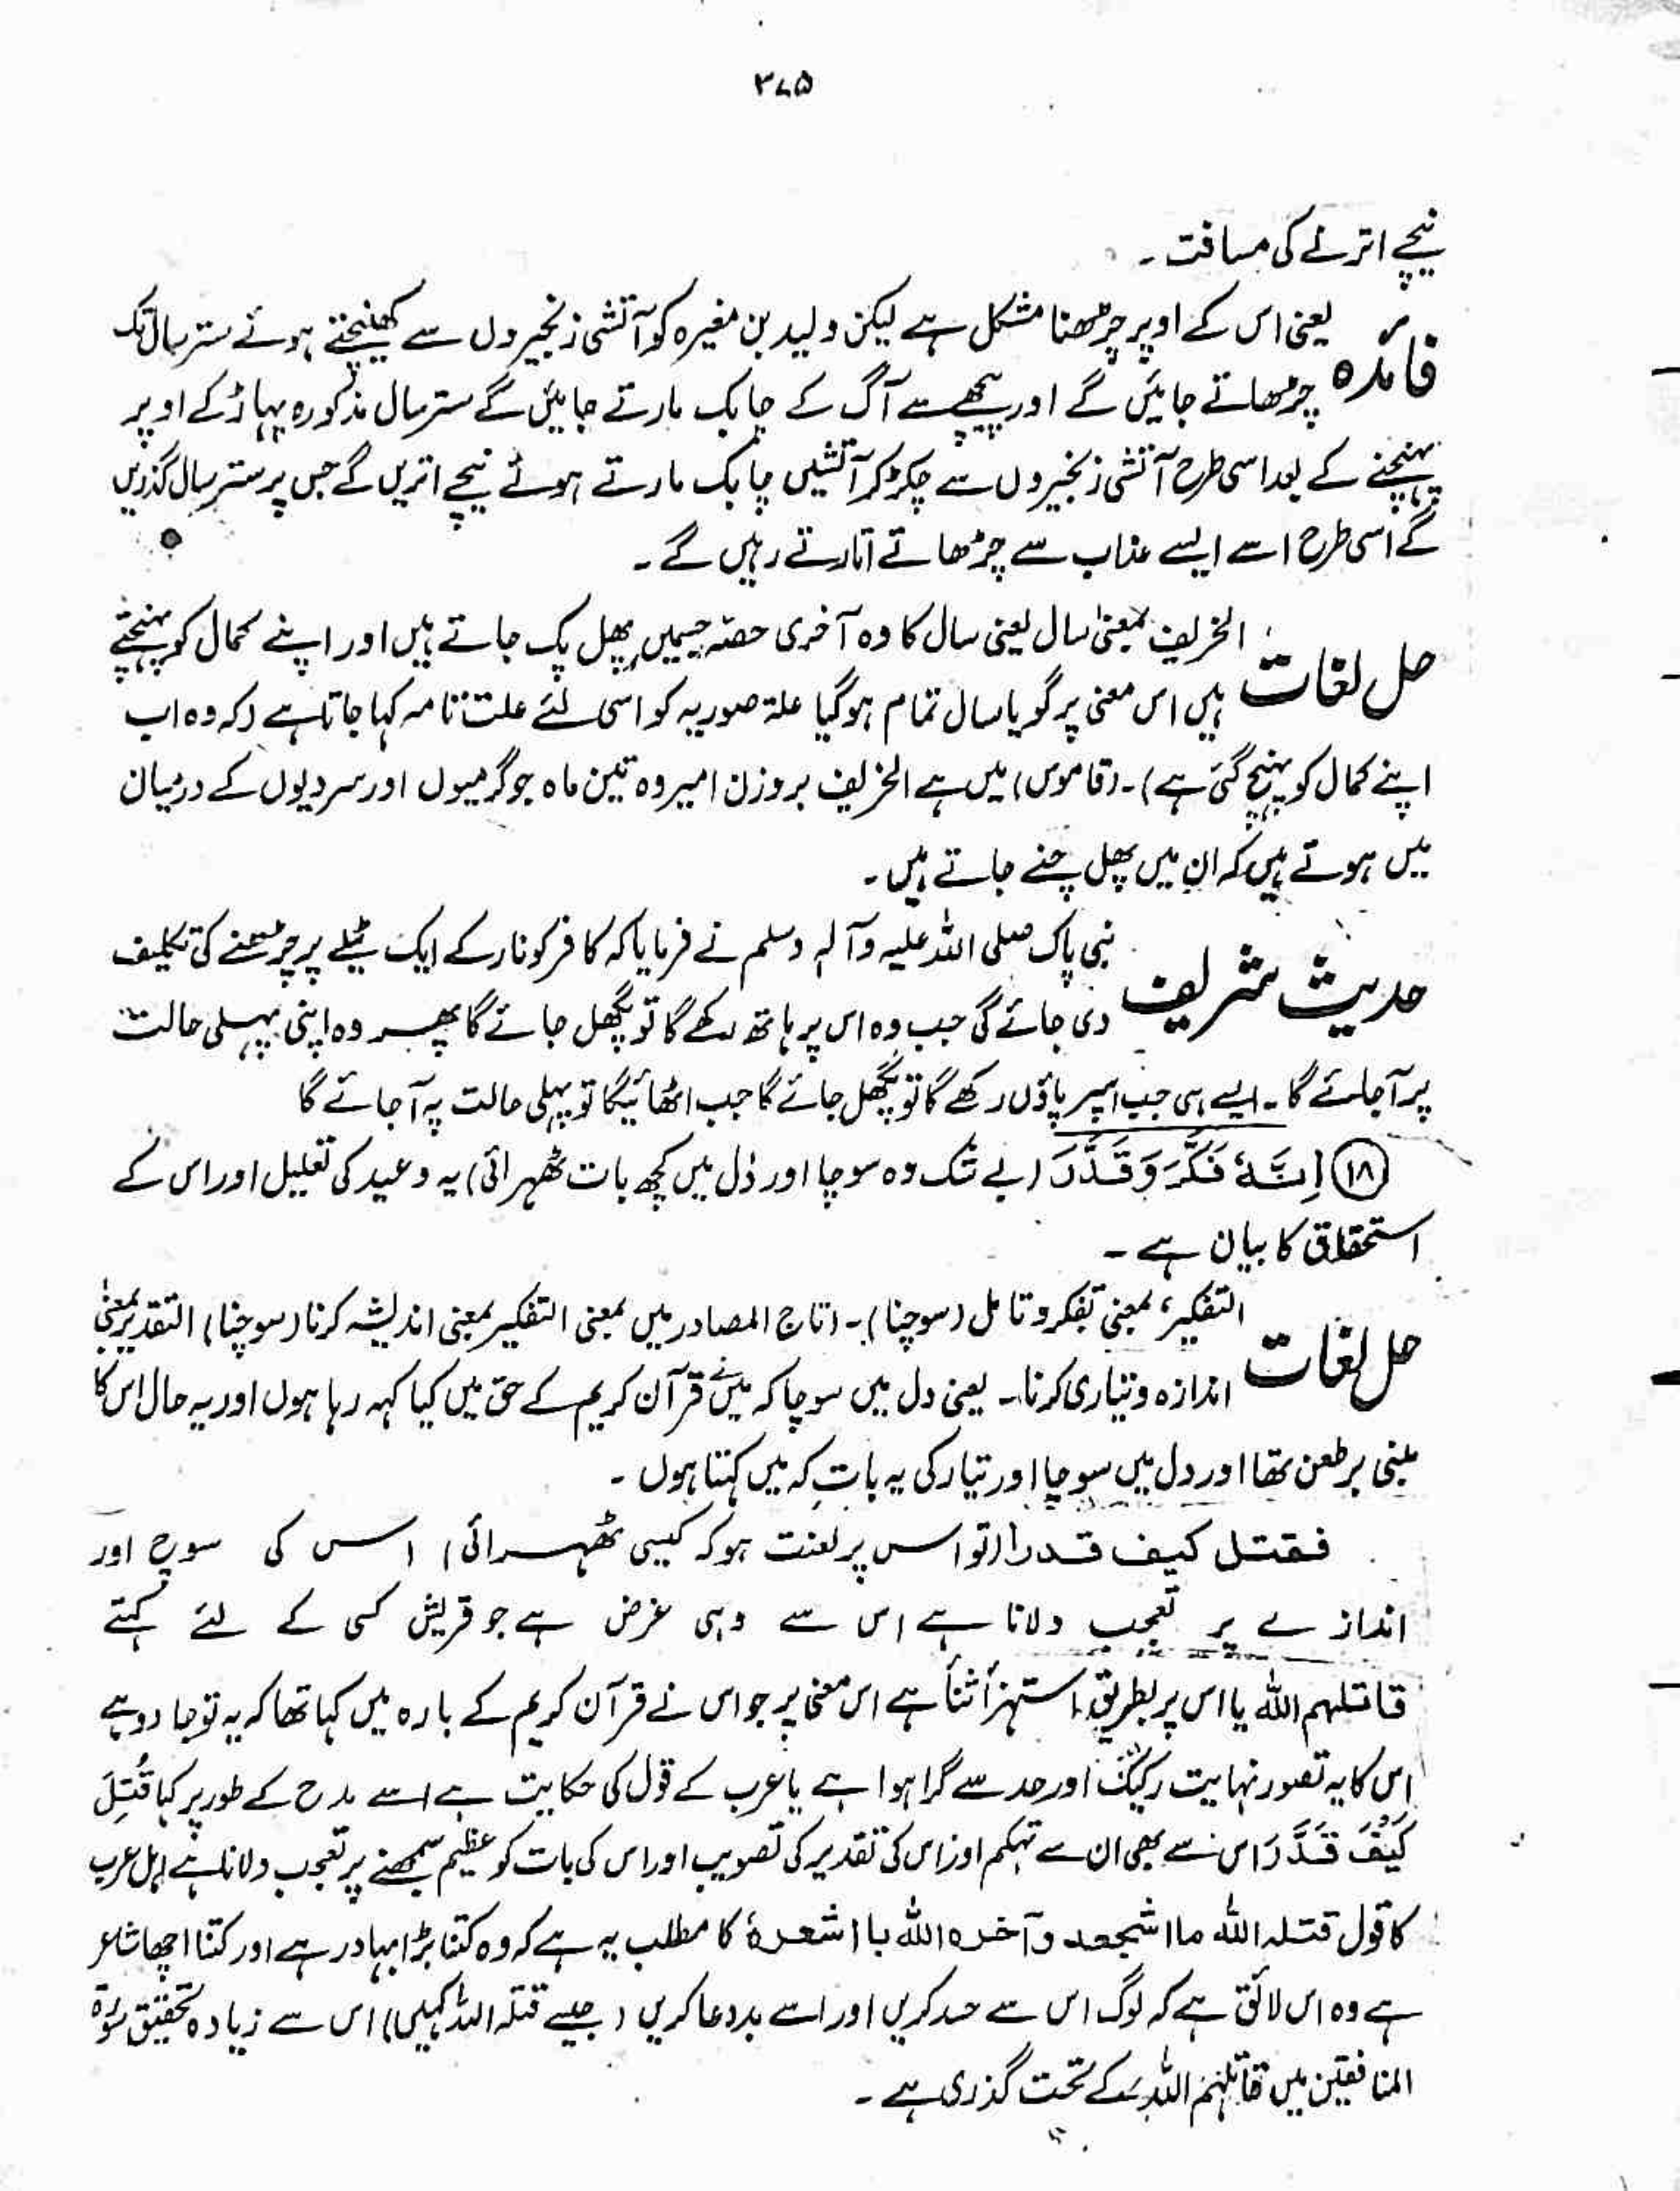 ۳۷۵
نیچے اترنے کی مسافت ۔
فائدہ یعنی اس کے اوپر چڑھنا مشکل ہے لیکن ولید بن مغیرہ کو آتشی زنجیروں سے کھینچتے ہوئے ستر سال تک
چڑھاتے جائیں گے اور پیچھے سے آگ کے چابک مارتے جائیں گے ستر سال مذکورہ پہاڑ کے اوپر
پہنچنے کے بعد اسی طرح آتشی زنجیروں سے جکڑ کر آتشیں چابک مارتے ہوئے نیچے اتریں گے جس پر ستر سال گذریں
گے اسی طرح اسے ایسے عذاب سے چڑھاتے اتارتے رہیں گے ۔
حل لغات الخریف بمعنیٰ سال یعنی سال کا وہ آخری حصہ جسمیں پھل پک جاتے ہیں اور اپنے کمال کو پہنچتے
ہیں اس معنی پر گویا سال تمام ہوگیا علۃ صوریہ کو اسی لئے علت تامہ کہا جاتا ہے (کہ وہ اب
اپنے کمال کو پہنچ گئی ہے)۔ (قاموس) میں ہے الخریف بروزن امیر وہ تین ماہ جو گرمیوں اور سردیوں کے درمیان
میں ہوتے ہیں کہ ان میں پھل چنے جاتے ہیں ۔
حدیث شریف نبی پاک صلی اللہ علیہ وآلہ وسلم نے فرمایا کہ کافر کو نار کے ایک ٹیلے پر چڑھنے کی تکلیف
دی جائے گی جب وہ اس پر ہاتھ رکھے گا تو پگھل جائے گا پھر وہ اپنی پہلی حالت
پر آجائے گا ۔ ایسے ہی جب اسپر پاؤں رکھے گا تو پگھل جائے گا جب اٹھائیگا تو پہلی حالت پہ آجائے گا
⑱ اِنَّهٗ فَكَّرَ وَقَدَّرَ (بے شک وہ سوچا اور دل میں کچھ بات ٹھہرائی) یہ وعید کی تعلیل اور اس کے
استحقاق کا بیان ہے ۔
حل لغات التفکیر، بمعنی تفکر و تامل (سوچنا)۔ (تاج المصادر میں بمعنی التفکیر بمعنی اندیشہ کرنا (سوچنا) التقدیر بمعنیٰ
اندازہ و تیاری کرنا۔ یعنی دل میں سوچا کہ میں نے قرآن کریم کے حق میں کیا کہہ رہا ہوں اور یہ حال اس کا
مبنی بر طعن تھا اور دل میں سوچا اور تیار کی یہ بات کہ میں کہتا ہوں ۔
فقتل کیف قدر (تو اس پر لعنت ہو کہ کیسی ٹھہرائی) اس کی سوچ اور
انداز ے پر تعجب دلانا ہے اس سے وہی غرض ہے جو قریش کسی کے لئے کہتے
قاتلہم اللہ یا اس پر بطریق استہزأ ثنأ ہے اس معنی پر جو اس نے قرآن کریم کے بارہ میں کہا تھا کہ یہ تو جادو ہے
اس کا یہ تصور نہایت رکیک اور حد سے گرا ہوا ہے یا عرب کے قول کی حکایت ہے اسے مدح کے طور پر کہا قُتِلَ
كَيْفَ قَدَّرَ اس سے بھی ان سے تہکم اور اس کی تقدیر کی تصویب اور اس کی بات کو عظیم سمجھنے پر تعجب دلانا ہے اہل عرب
کا قول قتلہ اللہ ما اشجعہ و آخرہ اللہ با اشعرہٗ کا مطلب یہ ہے کہ وہ کتنا بڑا بہادر ہے اور کتنا اچھا شاعر
ہے وہ اس لائق ہے کہ لوگ اس سے حسد کریں اور اسے بددعا کریں (جیسے قتلہ اللہ کہیں) اس سے زیادہ تحقیق سورۃ
المنافقین میں قاتلہم اللہ کے تحت گذری ہے ۔